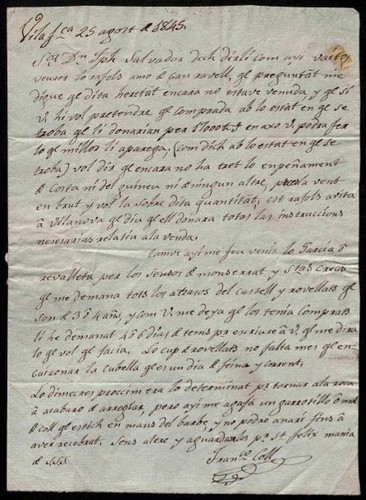 Vilafca 25 agost de 1845.
Sor. Dn. Jph. Salvador dech dirli com ayi vaitx
veurer lo rafols amo de Can rovell, qe preguntat me
digue qe dita heretat encara no estave venuda, y qe si
V. hi vol pretendrer qe comprada ab lo estat en qe se
troba qe li donarian per 11000 en axo V. podra fer
lo qe millor li aparega, (com dich ab lo estat en qe se
troba) vol dir qe encara no ha tret lo enpeñament
de Costa ni del ni de ningun altre, la vent
en brut y vol la sobre dita quantitat, est rafols avita
á vilanova qe dia qe ell donara totas las instruccions
necesarias relatiu ala venda.
tamve ayi me feu venir lo Garcia de
revalleta per los Sensos de monserrat y Stas Creus
qe me demana tots los atrasos del castell y rovellats qe
son de 3 o 4 añs, y com V. me deya qe los tenia comprats
li he demanat 4 o 6 dias de temps per escriurer á V. qe me dira
lo qe vol qe facia. Lo cup de rovellats no falta mes qe en
caironar la cubella qe es un dia de feina y corrent,
Lo dimecres proccim era lo determinat per tornar ala roca
á acabaro de arreglar, pero ayi me agafá un garrotillo o mal
de coll qe estich en mans del barbé, y no podre anari fins á
aver recobrat. Sens altre y aguardarlo pr. St. felix mania
de
Franco. Coll